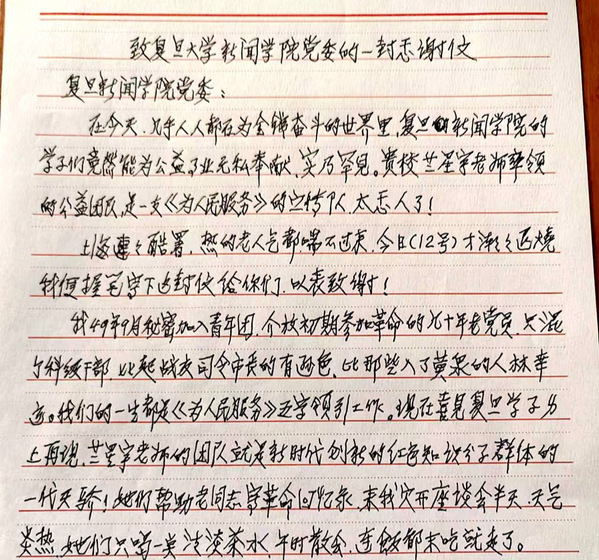 致复旦大学新闻学院党委的一封感谢信
复旦新闻学院党委：
在今天，几乎人人都在为金钱奋斗的世界里，复旦新闻学院的
学子们竟然能为公益事业无私奉献，实乃罕见。贵校 老师率领
的公益团队，是一支《为人民服务》的宣传队，太感人了！
上海连连酷暑，热的老人气都喘不过来，今日(12号)才渐渐退烧
便握笔写下这封信给你们，以表致谢！
我49年9月秘密加入青年团，个被初期参加革命的七十年老党员，只混
个科级干部，比起战友司令市委的有逊色，比那些入了黄泉的人 幸
运。我们的一生都是《为人民服务》五字领引工作。现在喜见复旦学子身
上再现， 老师的团队就是新时代创新的红色知识分子群体的
一代天骄！她们帮助老同志写革命 ，来我家开座谈会半天，天气
炎热，她们只喝一点淡淡茶水，午时散会，连饭都未吃就走了。